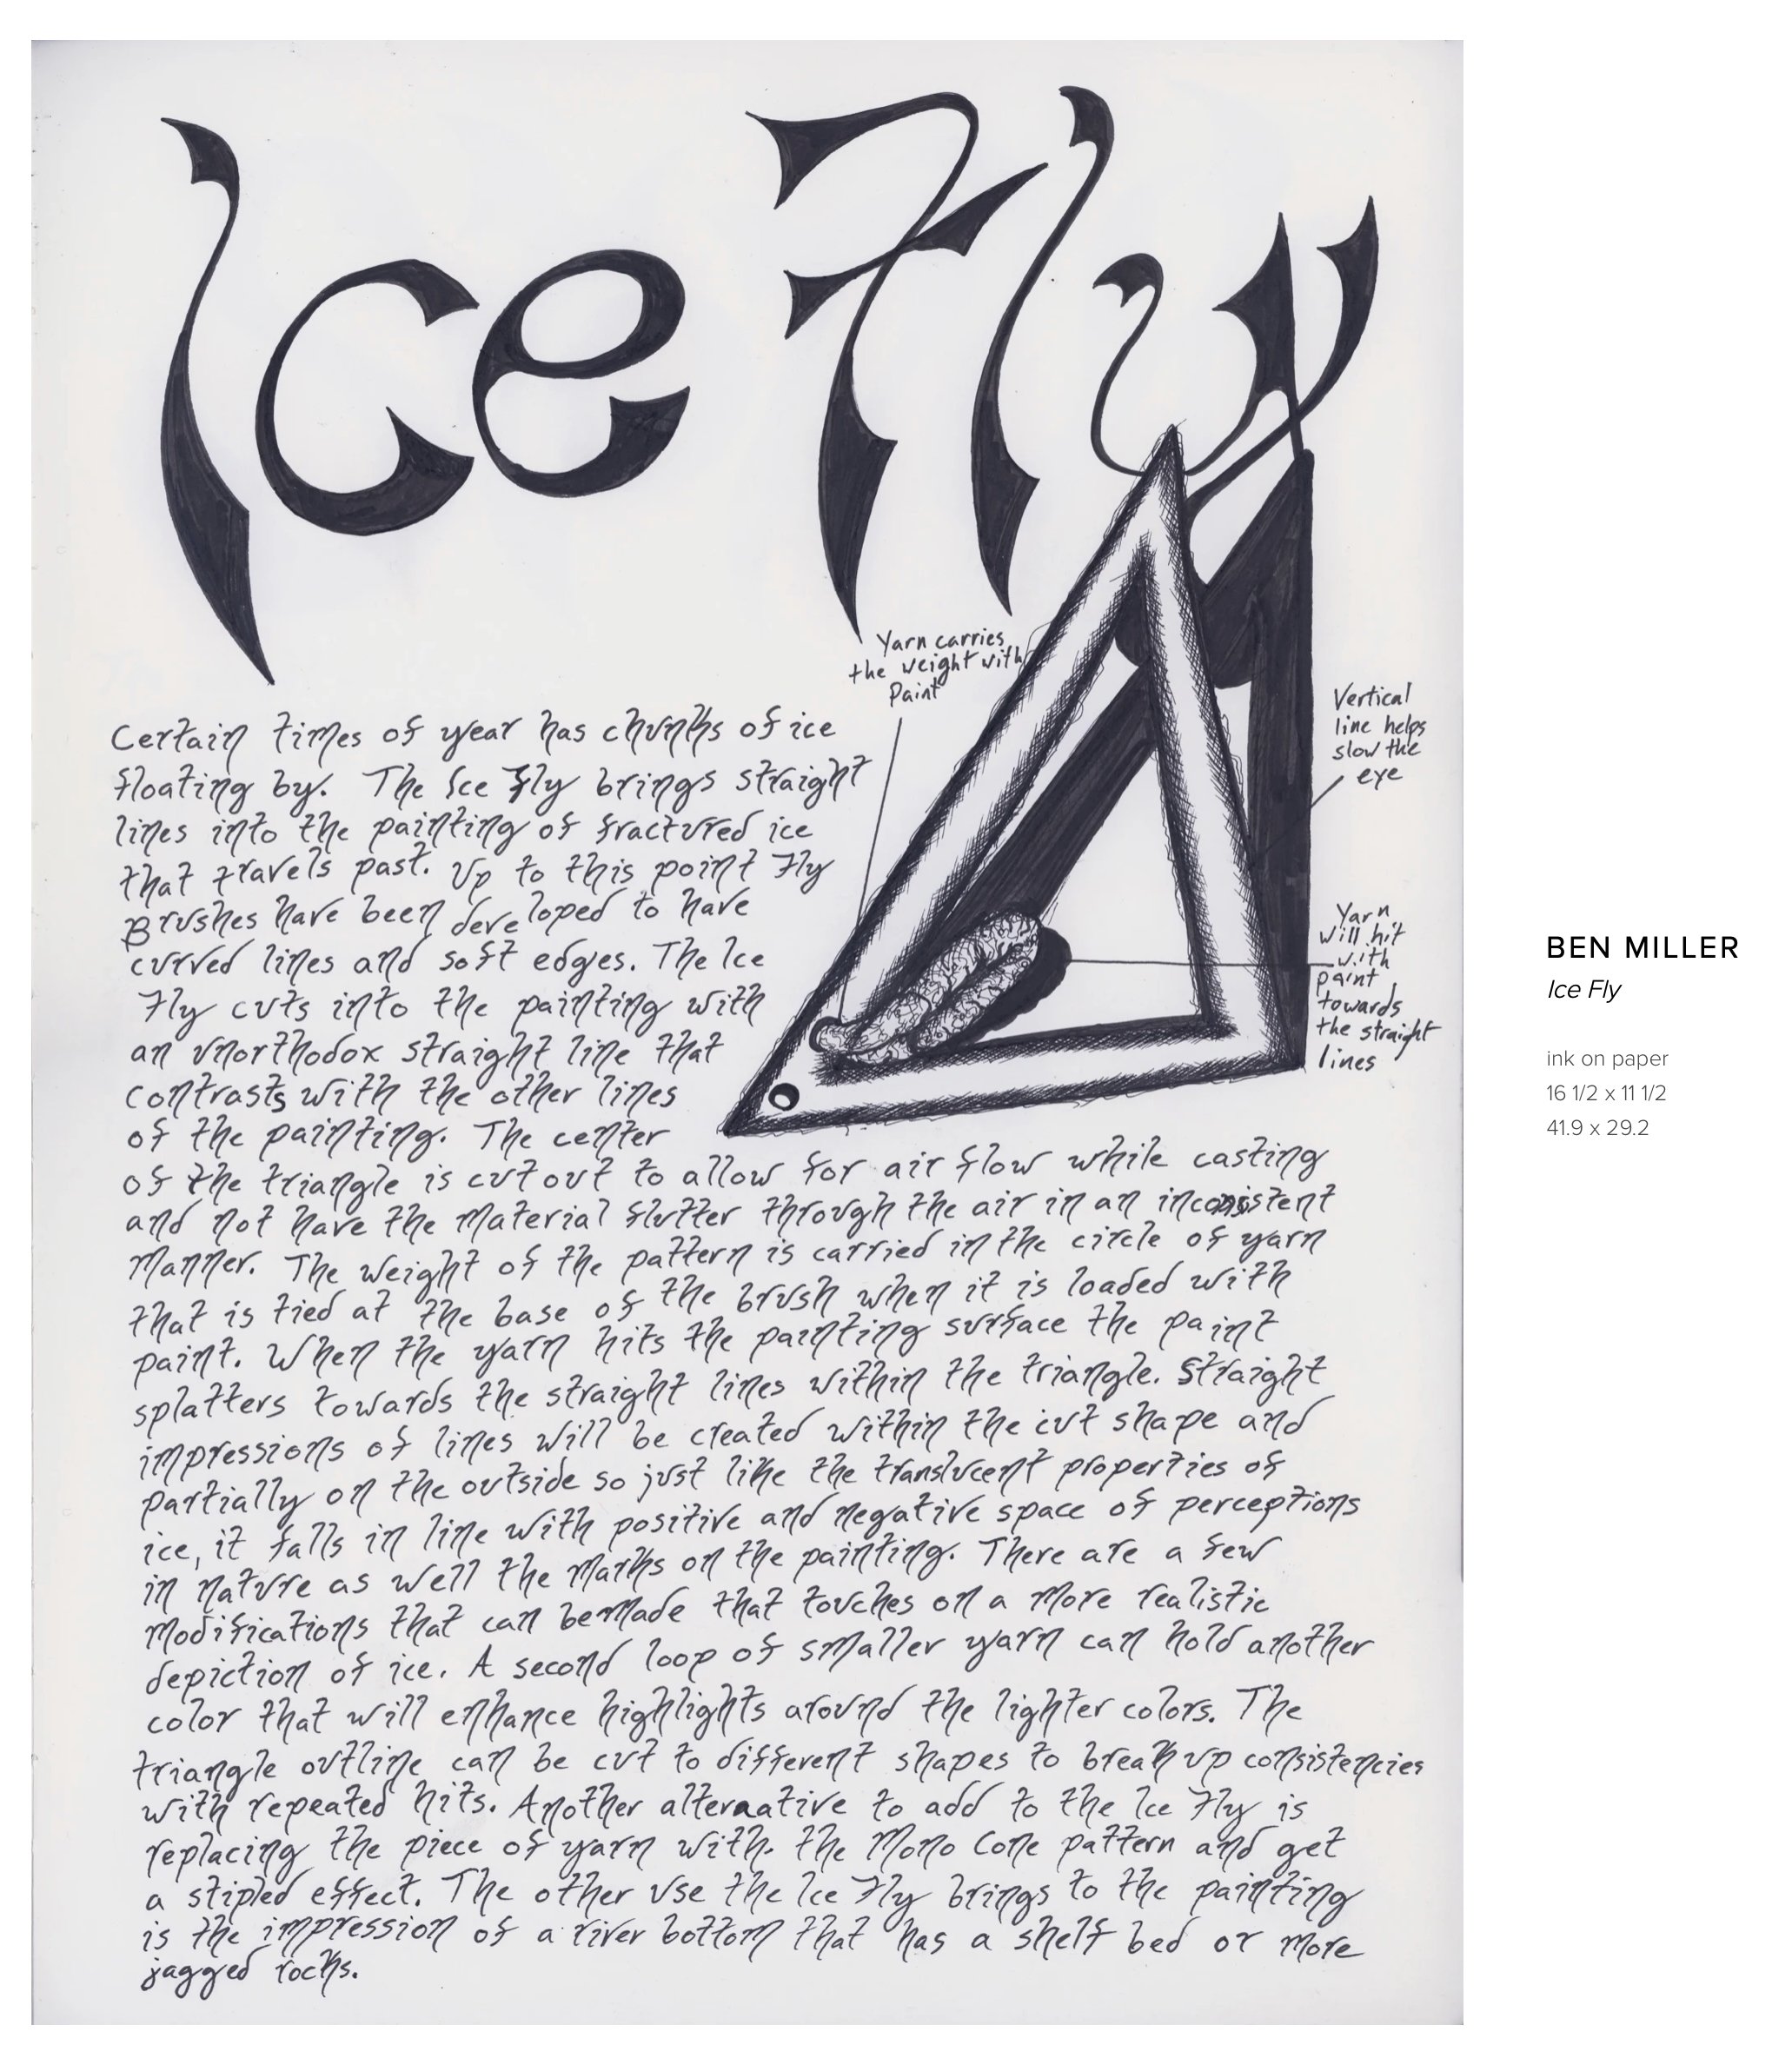 Ice Fly
Yarn carries
the weight with
Paint
Vertical
line helps
slow the
eye
Yarn
will hit
with
paint
towards
the straight
lines
Certain times of year has chunks of ice
floating by. The Ice Fly brings straight
lines into the painting of fractured ice
that travels past. Up to this point Fly
Brushes have been developed to have
curved lines and soft edges. The Ice
Fly cuts into the painting with
an unorthodox straight line that
contrasts with the other lines
of the painting. The center
of the triangle is cut out to allow for air flow while casting
and not have the material flutter through the air in an inconsistent
manner. The weight of the pattern is carried in the circle of yarn
that is tied at the base of the brush when it is loaded with
paint. When the yarn hits the painting surface the paint
splatters towards the straight lines within the triangle. Straight
impressions of lines will be created within the cut shape and
partially on the outside so just like the translucent properties of
ice, it falls in line with positive and negative space of perceptions
in nature as well the marks on the painting. There are a few
modifications that can be made that touches on a more realistic
depiction of ice. A second loop of smaller yarn can hold another
color that will enhance highlights around the lighter colors. The
triangle outline can be cut to different shapes to break up consistencies
with repeated hits. Another alternative to add to the Ice Fly is
replacing the piece of yarn with the Mono Cone pattern and get
a stipled effect. The other use the Ice Fly brings to the painting
is the impression of a river bottom that has a shelf bed or more
jagged rocks.
BEN MILLER
Ice Fly
ink on paper
16 1/2 x 11 1/2
41.9 x 29.2